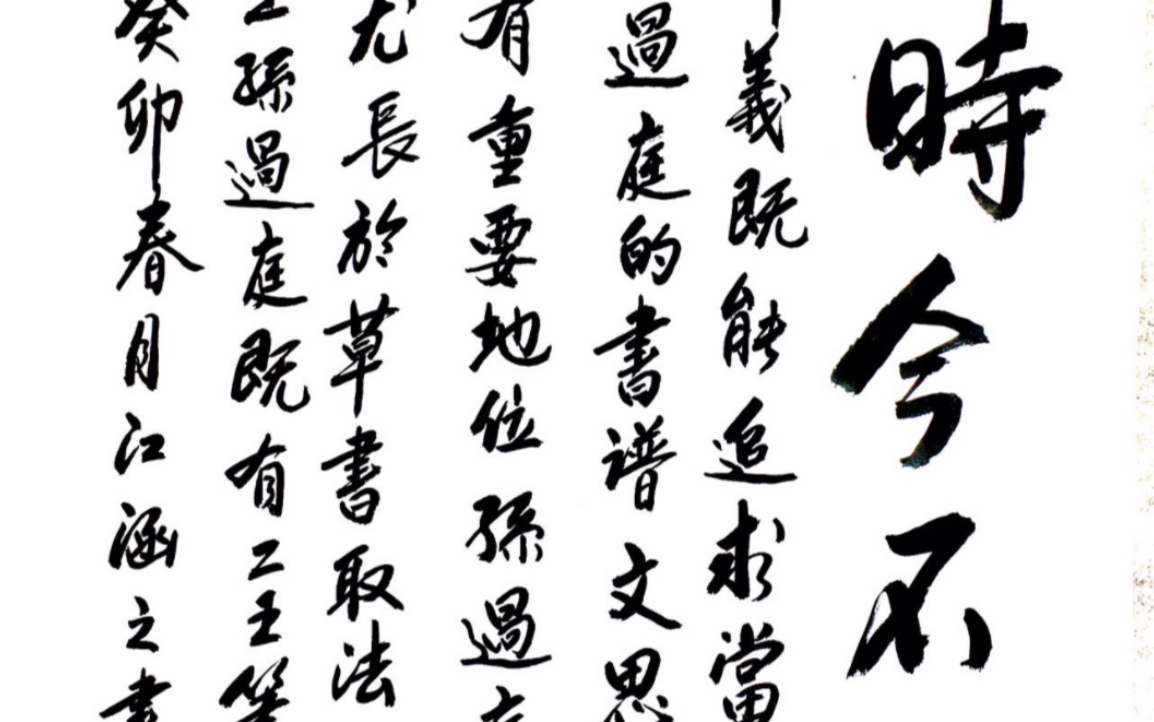 時今不
義既能追求當
過庭的書譜文思
有重要地位孫過
尤長於草書取法
王孫過庭既有二王筆
癸卯春月江涵之書